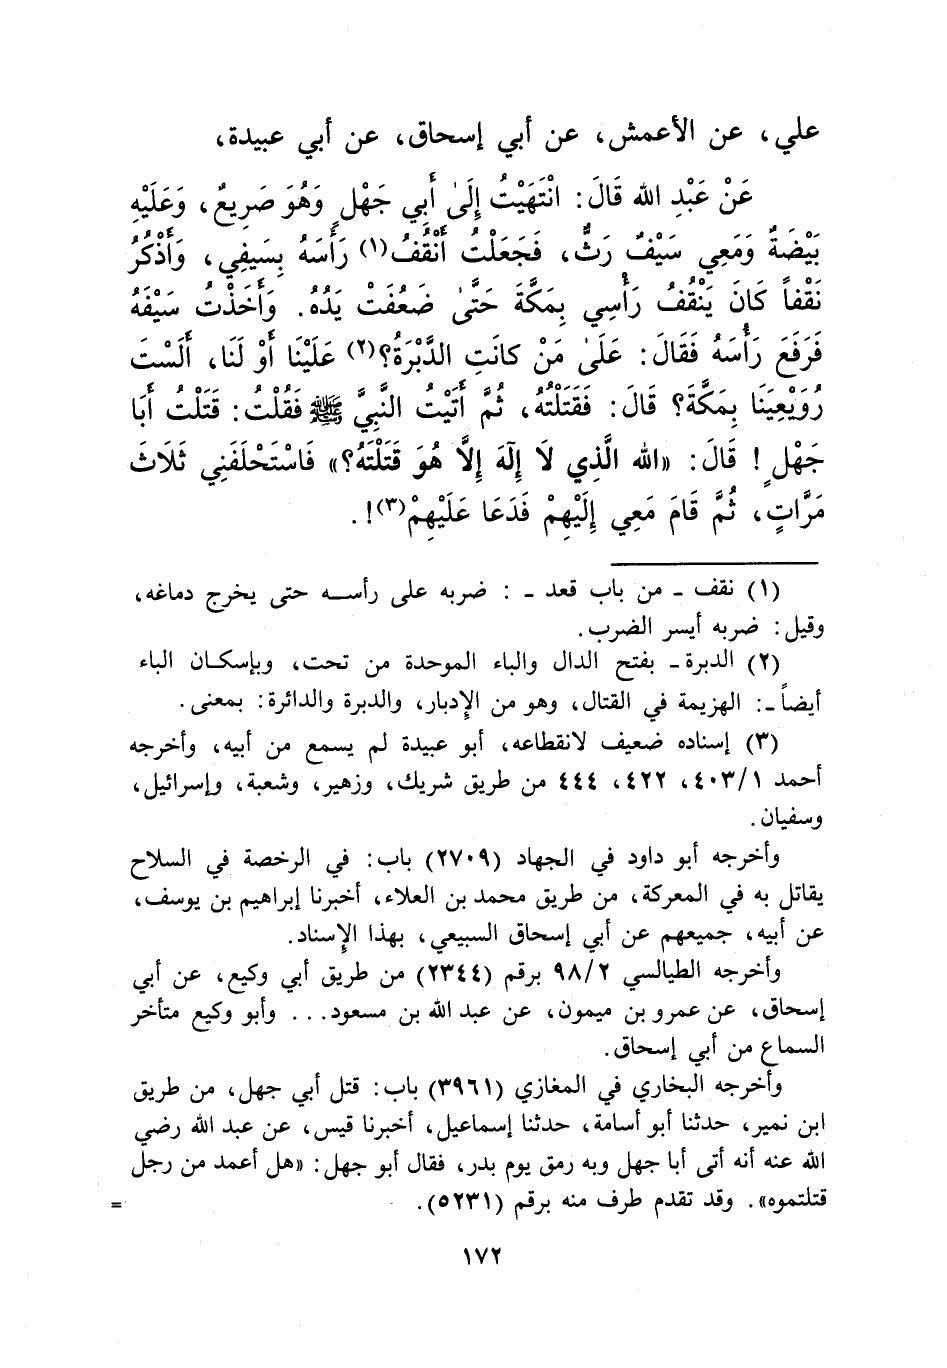 علي، عن الأعمش، عن أبي إسحاق، عن أبي عبيدة،
عَنْ عَبْدِ الله قَالَ: انْتَهَيْتُ إِلَىٰ أَبِي جَهْلٍ وَهُوَ صَرِيعٌ، وَعَلَيْهِ
بَيْضَةٌ وَمَعِي سَيْفٌ رَثٌّ، فَجَعَلْتُ أَنْقُفُ(١) رَأْسَهُ بِسَيفِي، وَأَذْكُرُ
نَقْفاً كَانَ يَنْقُفُ رَأْسِي بِمَكَّةَ حَتَّىٰ ضَعُفَتْ يَدُهُ. وَأَخَذْتُ سَيْفَهُ
فَرَفَعَ رَأْسَهُ فَقَالَ: عَلَىٰ مَنْ كانَتِ الدَّبْرَةُ؟(٢) عَلَيْنَا أَوْ لَنَا، أَلَسْتَ
رُوَيْعِيَنَا بِمَكَّةَ؟ قَالَ: فَقَتَلْتُهُ، ثُمَّ أَتَيْتُ النَّبِيَّ ﷺ فَقُلْتُ: قَتَلْتُ أَبَا
جَهْلٍ! قَالَ: «الله الَّذِي لَا إِلَهَ إِلَّا هُوَ قَتَلْتَهُ؟» فَاسْتَحْلَفَنِي ثَلَاثَ
مَرَّاتٍ، ثُمَّ قَامَ مَعِي إِلَيْهِمْ فَدَعَا عَلَيْهِمْ(٣)!.
(١) نقف ـ من باب قعد ـ : ضربه على رأسه حتى يخرج دماغه،
وقيل: ضربه أيسر الضرب.
(٢) الدبرة ـ بفتح الدال والباء الموحدة من تحت، وبإسكان الباء
أيضاً ـ: الهزيمة في القتال، وهو من الإدبار، والدبرة والدائرة: بمعنى.
(٣) إسناده ضعيف لانقطاعه، أبو عبيدة لم يسمع من أبيه، وأخرجه
أحمد ٤٠٣/١، ٤٢٢، ٤٤٤ من طريق شريك، وزهير، وشعبة، وإسرائيل،
وسفيان.
وأخرجه أبو داود في الجهاد (٢٧٠٩) باب: في الرخصة في السلاح
يقاتل به في المعركة، من طريق محمد بن العلاء، أخبرنا إبراهيم بن يوسف،
عن أبيه، جميعهم عن أبي إسحاق السبيعي، بهذا الإسناد.
وأخرجه الطيالسي ٩٨/٢ برقم (٢٣٤٤) من طريق أبي وكيع، عن أبي
إسحاق، عن عمرو بن ميمون، عن عبد الله بن مسعود... وأبو وكيع متأخر
السماع من أبي إسحاق.
وأخرجه البخاري في المغازي (٣٩٦١) باب: قتل أبي جهل، من طريق
ابن نمير، حدثنا أبو أسامة، حدثنا إسماعيل، أخبرنا قيس، عن عبد الله رضي
الله عنه أنه أتى أبا جهل وبه رمق يوم بدر، فقال أبو جهل: «هل أعمد من رجل
قتلتموه». وقد تقدم طرف منه برقم (٥٢٣١). =
١٧٢